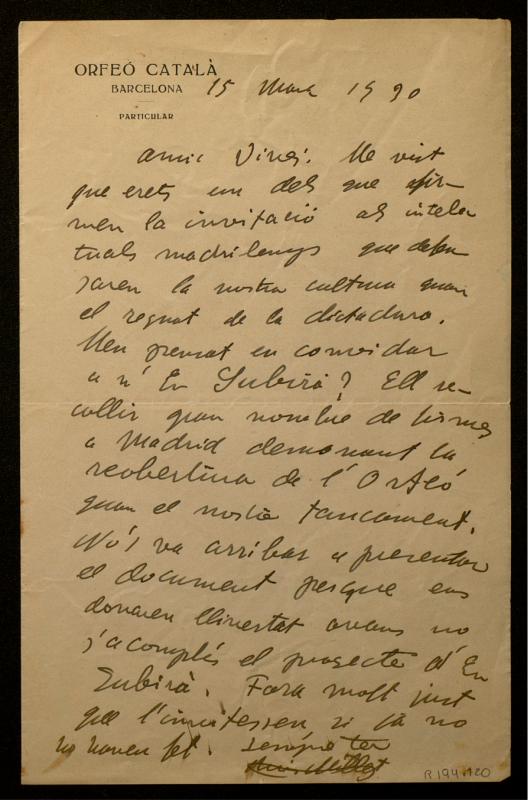 ORFEÓ CATALÀ
BARCELONA
PARTICULAR
15 Mars 1930
Amic Vines. He vist
que erets un dels que fir-
men la invitació als intelec-
tuals madrilenys que defen-
saren la nostra cultura quan
el regnat de la dictadura.
Heu pensat en convidar
a n' En Subirà? Ell re-
collir gran nombre de firmes
a Madrid demanant la
reobertura de l'Orfeó
quan el nostre tancament.
No's va arribar a presentar
el document perque ens
donaren llivertat avans no
s'acomplís el projecte d'En
Subirà. Fora molt just
que l'invitessen si ja no
ho haveu fet. Sempre teu
Lluis Millet
R 194.120